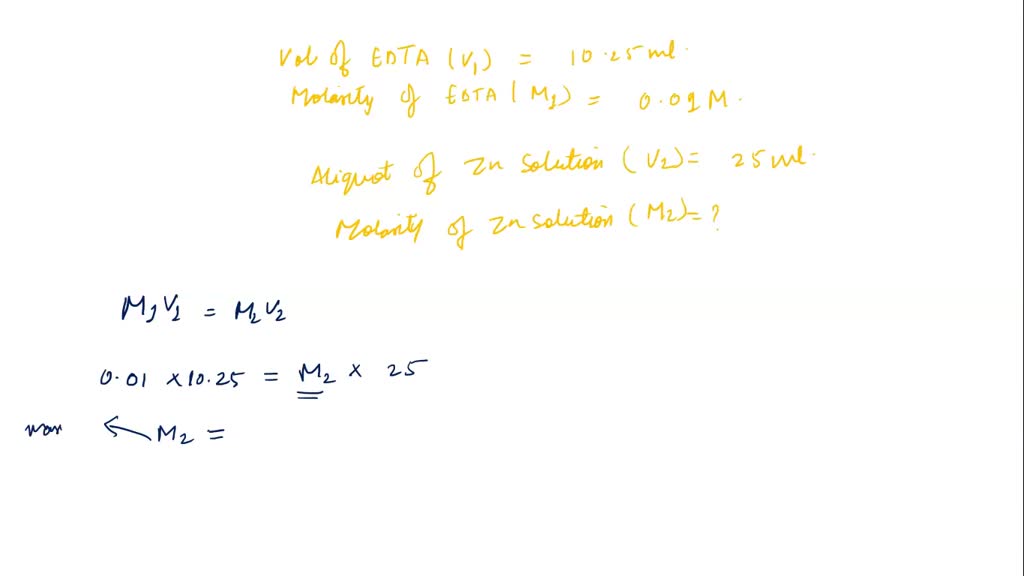 Vol of EDTA (V1) = 10.25 ml.
Molarity of EDTA (M1) = 0.01 M.
Aliquot of Zn solution (V2) = 25 ml.
Molarity of Zn solution (M2) = ?
M1V1 = M2V2
0.01 × 10.25 = M2 × 25
← M2 =